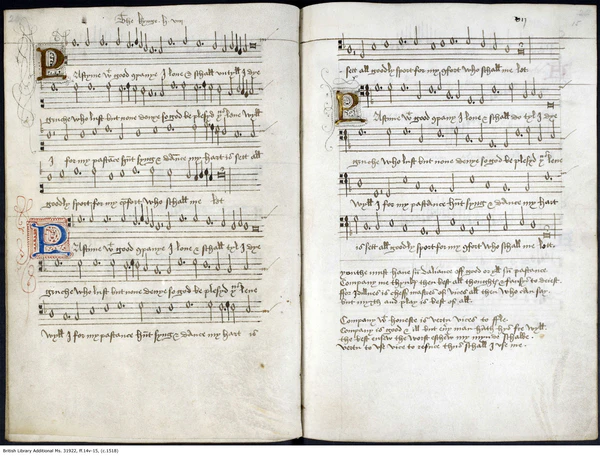 The Kynge H viij
Pastyme wt good companye I love & schall untyll I dye
gruche who lust but none denye so god be plesyd yus leve wyll
I for my pastance hunt syng & dance my hart is sett all
goodly sport for my cõfort who schall me let
Pastyme wt good companye I love & schall tyl I dye
gruche who lust but none denye so god be plesyd yus leve
wyll I for my pastance hunt syng & dance my hart is
sett all goodly sport for my cõfort who schall me let.
Pastyme wt good companye I love & schall do tyl I dye
gruche who lust but none denye so god be plesyd yus leve
wyll I for my pastance hunt syng & dance my hart
is sett all goodly sport for my cõfort who schall me lett.
youthe must have sũ daliance off good or yll sũ pastance.
Company me thynks then best all thoughts & fansys to deiest.
for Idillnes is cheff mastres of vices all then who can say.
but myrth and play is best of all.
Company wt honeste is vertu vices to ffle.
Company is good & ill but evry man hath hys fre wyll.
the best ensew the worst eschew my mynde schalbe.
vertu to use vice to refuce thus schall I use me.
British Library Additional Ms. 31922, ff.14v-15, (c.1518)